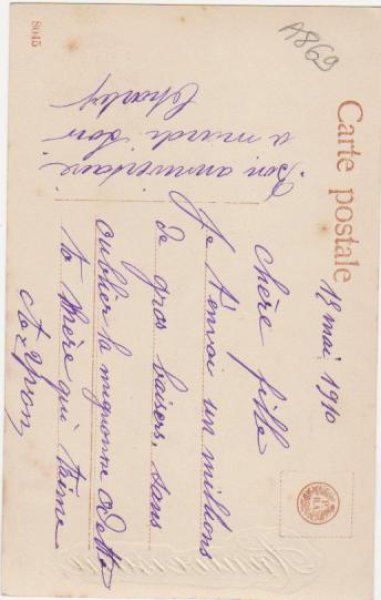 Carte postale
8045
A869
Bon anniversaire
a mardi soir
Charles
12 mai 1910
Chère fille
Je t'envoi un millions
de gros baisers, sans
oublier la mignonne Odette
ta mère qui t'aime
Yvon